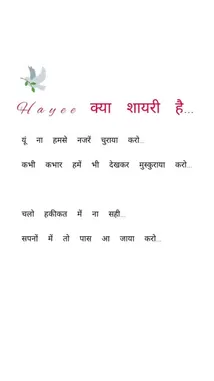 Hayee क्या शायरी है...
यूं ना हमसे नजरें चुराया करो...
कभी कभार हमें भी देखकर मुस्कुराया करो...
चलो हकीकत में ना सही...
सपनों में तो पास आ जाया करो...